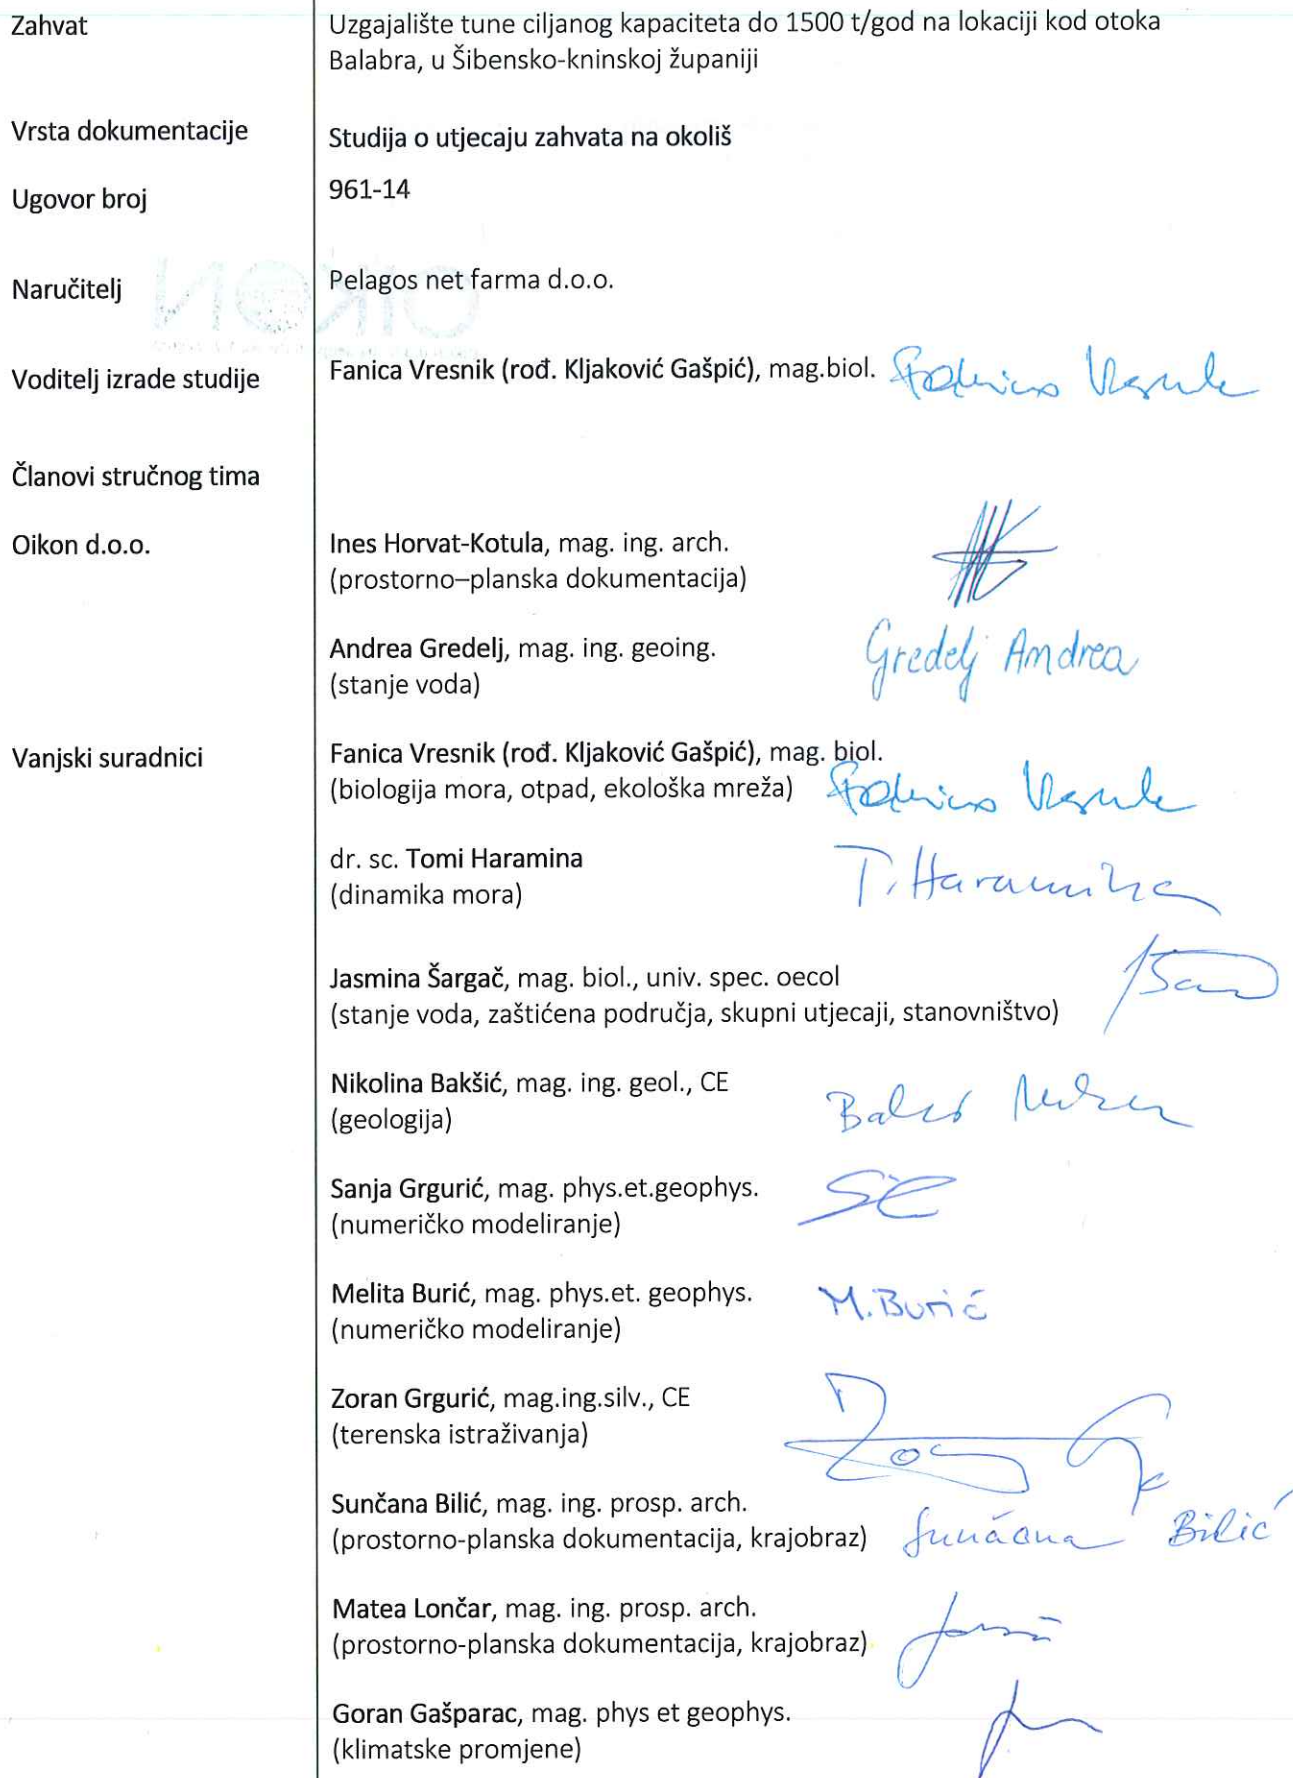 Zahvat
Uzgajalište tune ciljanog kapaciteta do 1500 t/god na lokaciji kod otoka
Balabra, u Šibensko-kninskoj županiji
Vrsta dokumentacije
Studija o utjecaju zahvata na okoliš
Ugovor broj
961-14
Naručitelj
Pelagos net farma d.o.o.
Voditelj izrade studije
Fanica Vresnik (rođ. Kljaković Gašpić), mag.biol.
Članovi stručnog tima
Oikon d.o.o.
Ines Horvat-Kotula, mag. ing. arch.
(prostorno–planska dokumentacija)
Andrea Gredelj, mag. ing. geoing.
(stanje voda)
Gredelj Andrea
Vanjski suradnici
Fanica Vresnik (rođ. Kljaković Gašpić), mag. biol.
(biologija mora, otpad, ekološka mreža)
dr. sc. Tomi Haramina
(dinamika mora)
T. Haramina
Jasmina Šargač, mag. biol., univ. spec. oecol
(stanje voda, zaštićena područja, skupni utjecaji, stanovništvo)
Nikolina Bakšić, mag. ing. geol., CE
(geologija)
Sanja Grgurić, mag. phys.et.geophys.
(numeričko modeliranje)
Melita Burić, mag. phys.et. geophys.
(numeričko modeliranje)
M. Burić
Zoran Grgurić, mag.ing.silv., CE
(terenska istraživanja)
Sunčana Bilić, mag. ing. prosp. arch.
(prostorno-planska dokumentacija, krajobraz)
Sunčana Bilić
Matea Lončar, mag. ing. prosp. arch.
(prostorno-planska dokumentacija, krajobraz)
Goran Gašparac, mag. phys et geophys.
(klimatske promjene)